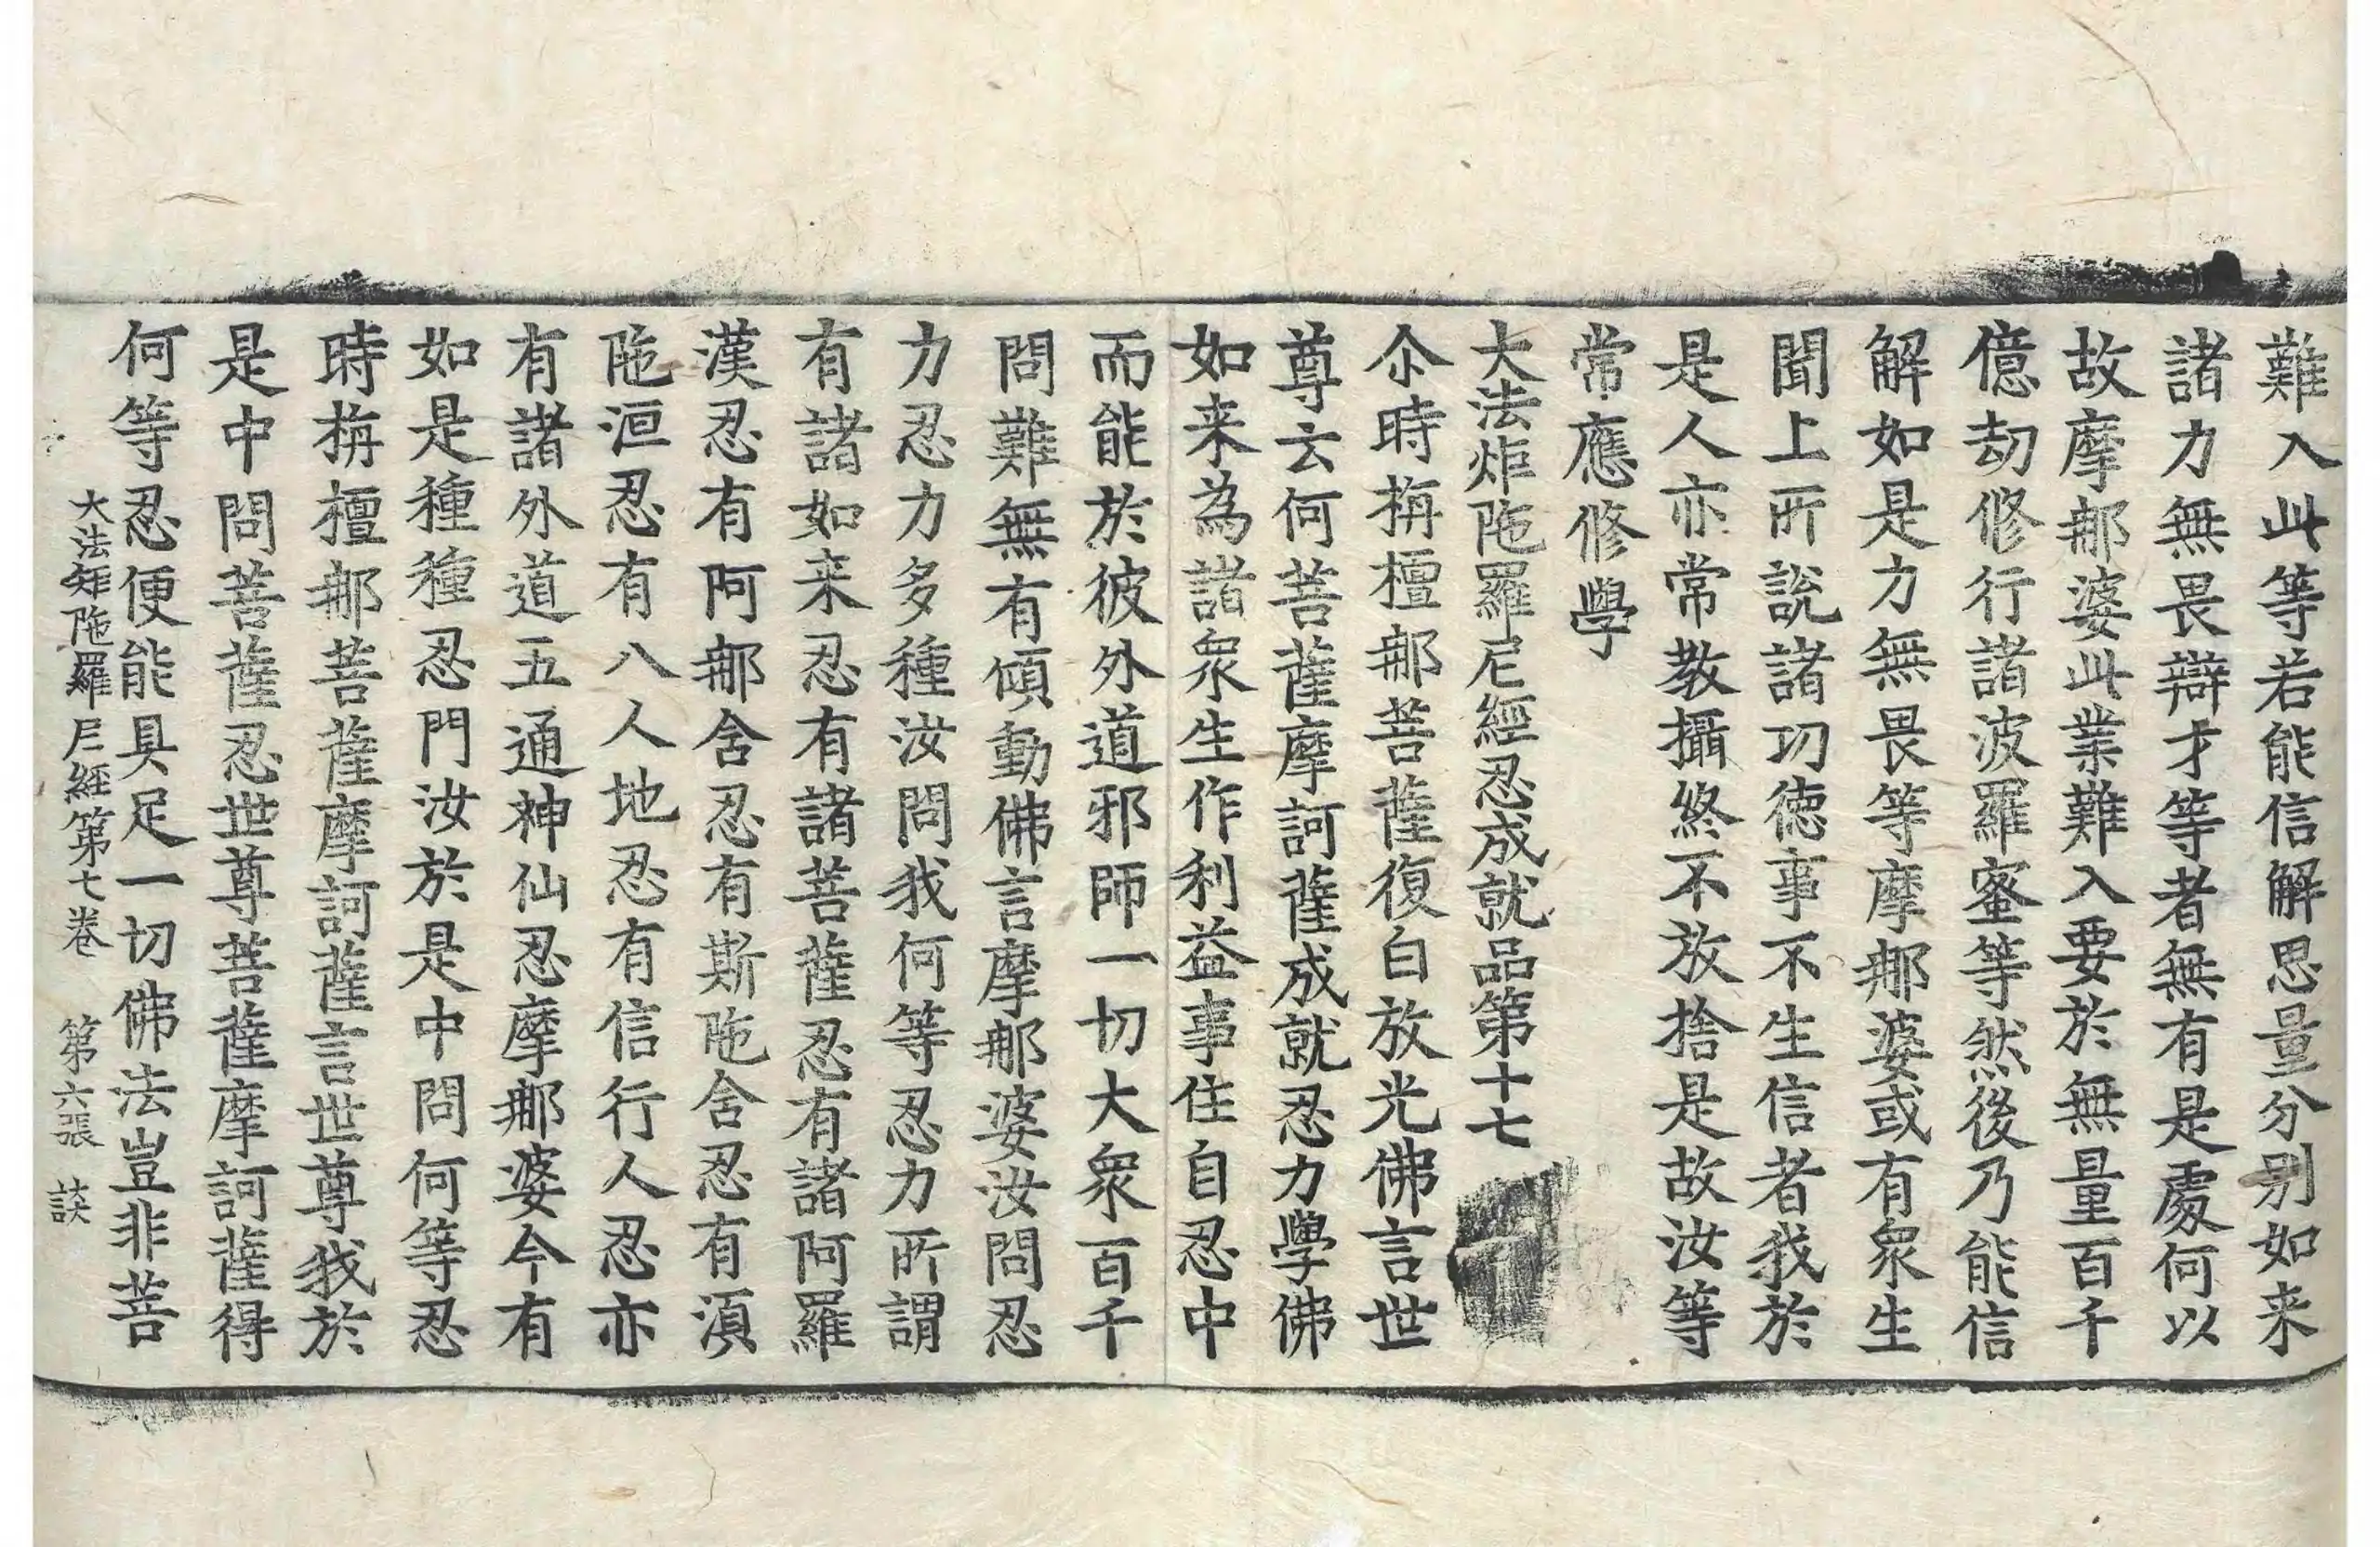 難入此等若能信解思量分别如来
諸力無畏辯才等者無有是處何以
故摩那婆此業難入要於無量百千
億劫修行諸波羅蜜等然後乃能信
解如是力無畏等摩那婆或有衆生
聞上所說諸功德事不生信者我於
是人亦常教攝終不放捨是故汝等
常應修學
大法炬陁羅尼經忍成就品第十七
尒時栴檀那菩薩復白放光佛言世
尊云何菩薩摩訶薩成就忍力學佛
如来為諸衆生作利益事住自忍中
而能於彼外道邪師一切大衆百千
問難無有傾動佛言摩那婆汝問忍
力忍力多種汝問我何等忍力所謂
有諸如来忍有諸菩薩忍有諸阿羅
漢忍有阿那含忍有斯陁含忍有湏
陁洹忍有八人地忍有信行人忍亦
有諸外道五通神仙忍摩那婆今有
如是種種忍門汝於是中問何等忍
時栴檀那菩薩摩訶薩言世尊我於
是中問菩薩忍世尊菩薩摩訶薩得
何等忍便能具足一切佛法豈非菩
大法炬陁羅尼經第七卷 第六張 談